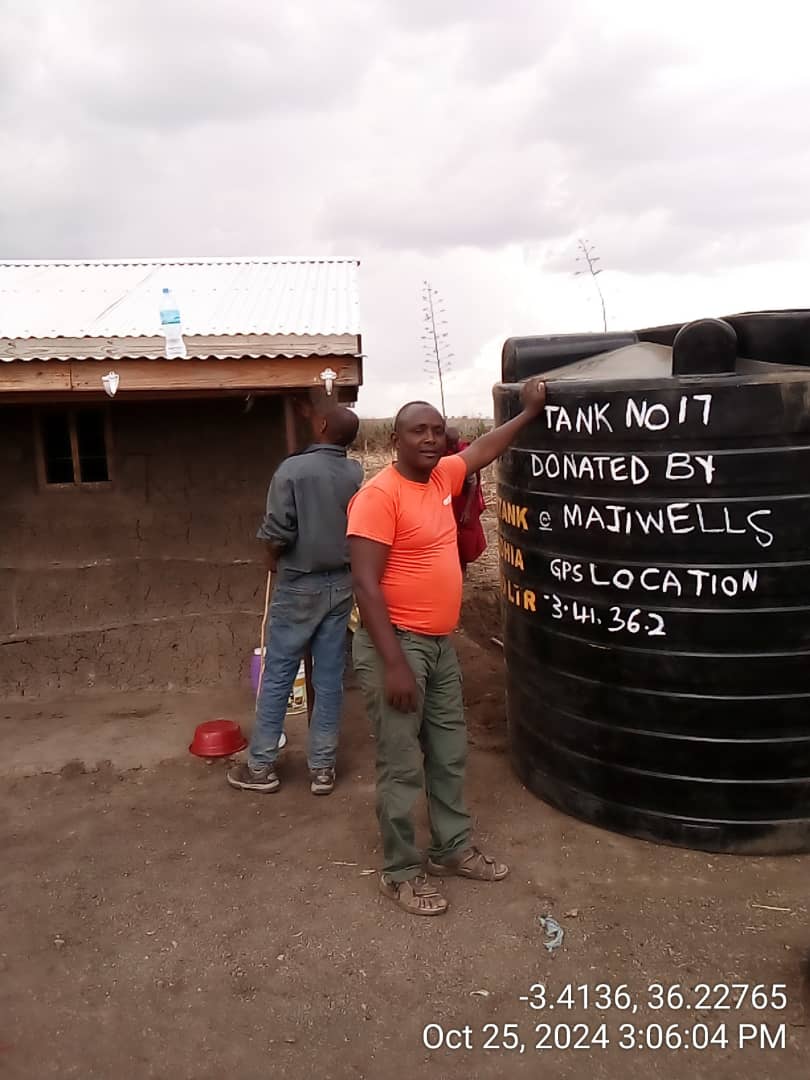 TANK NO 17
DONATED BY
@ MAJIWELLS
GPS LOCATION
-3.41.36.2
-3.4136, 36.22765
Oct 25, 2024 3:06:04 PM